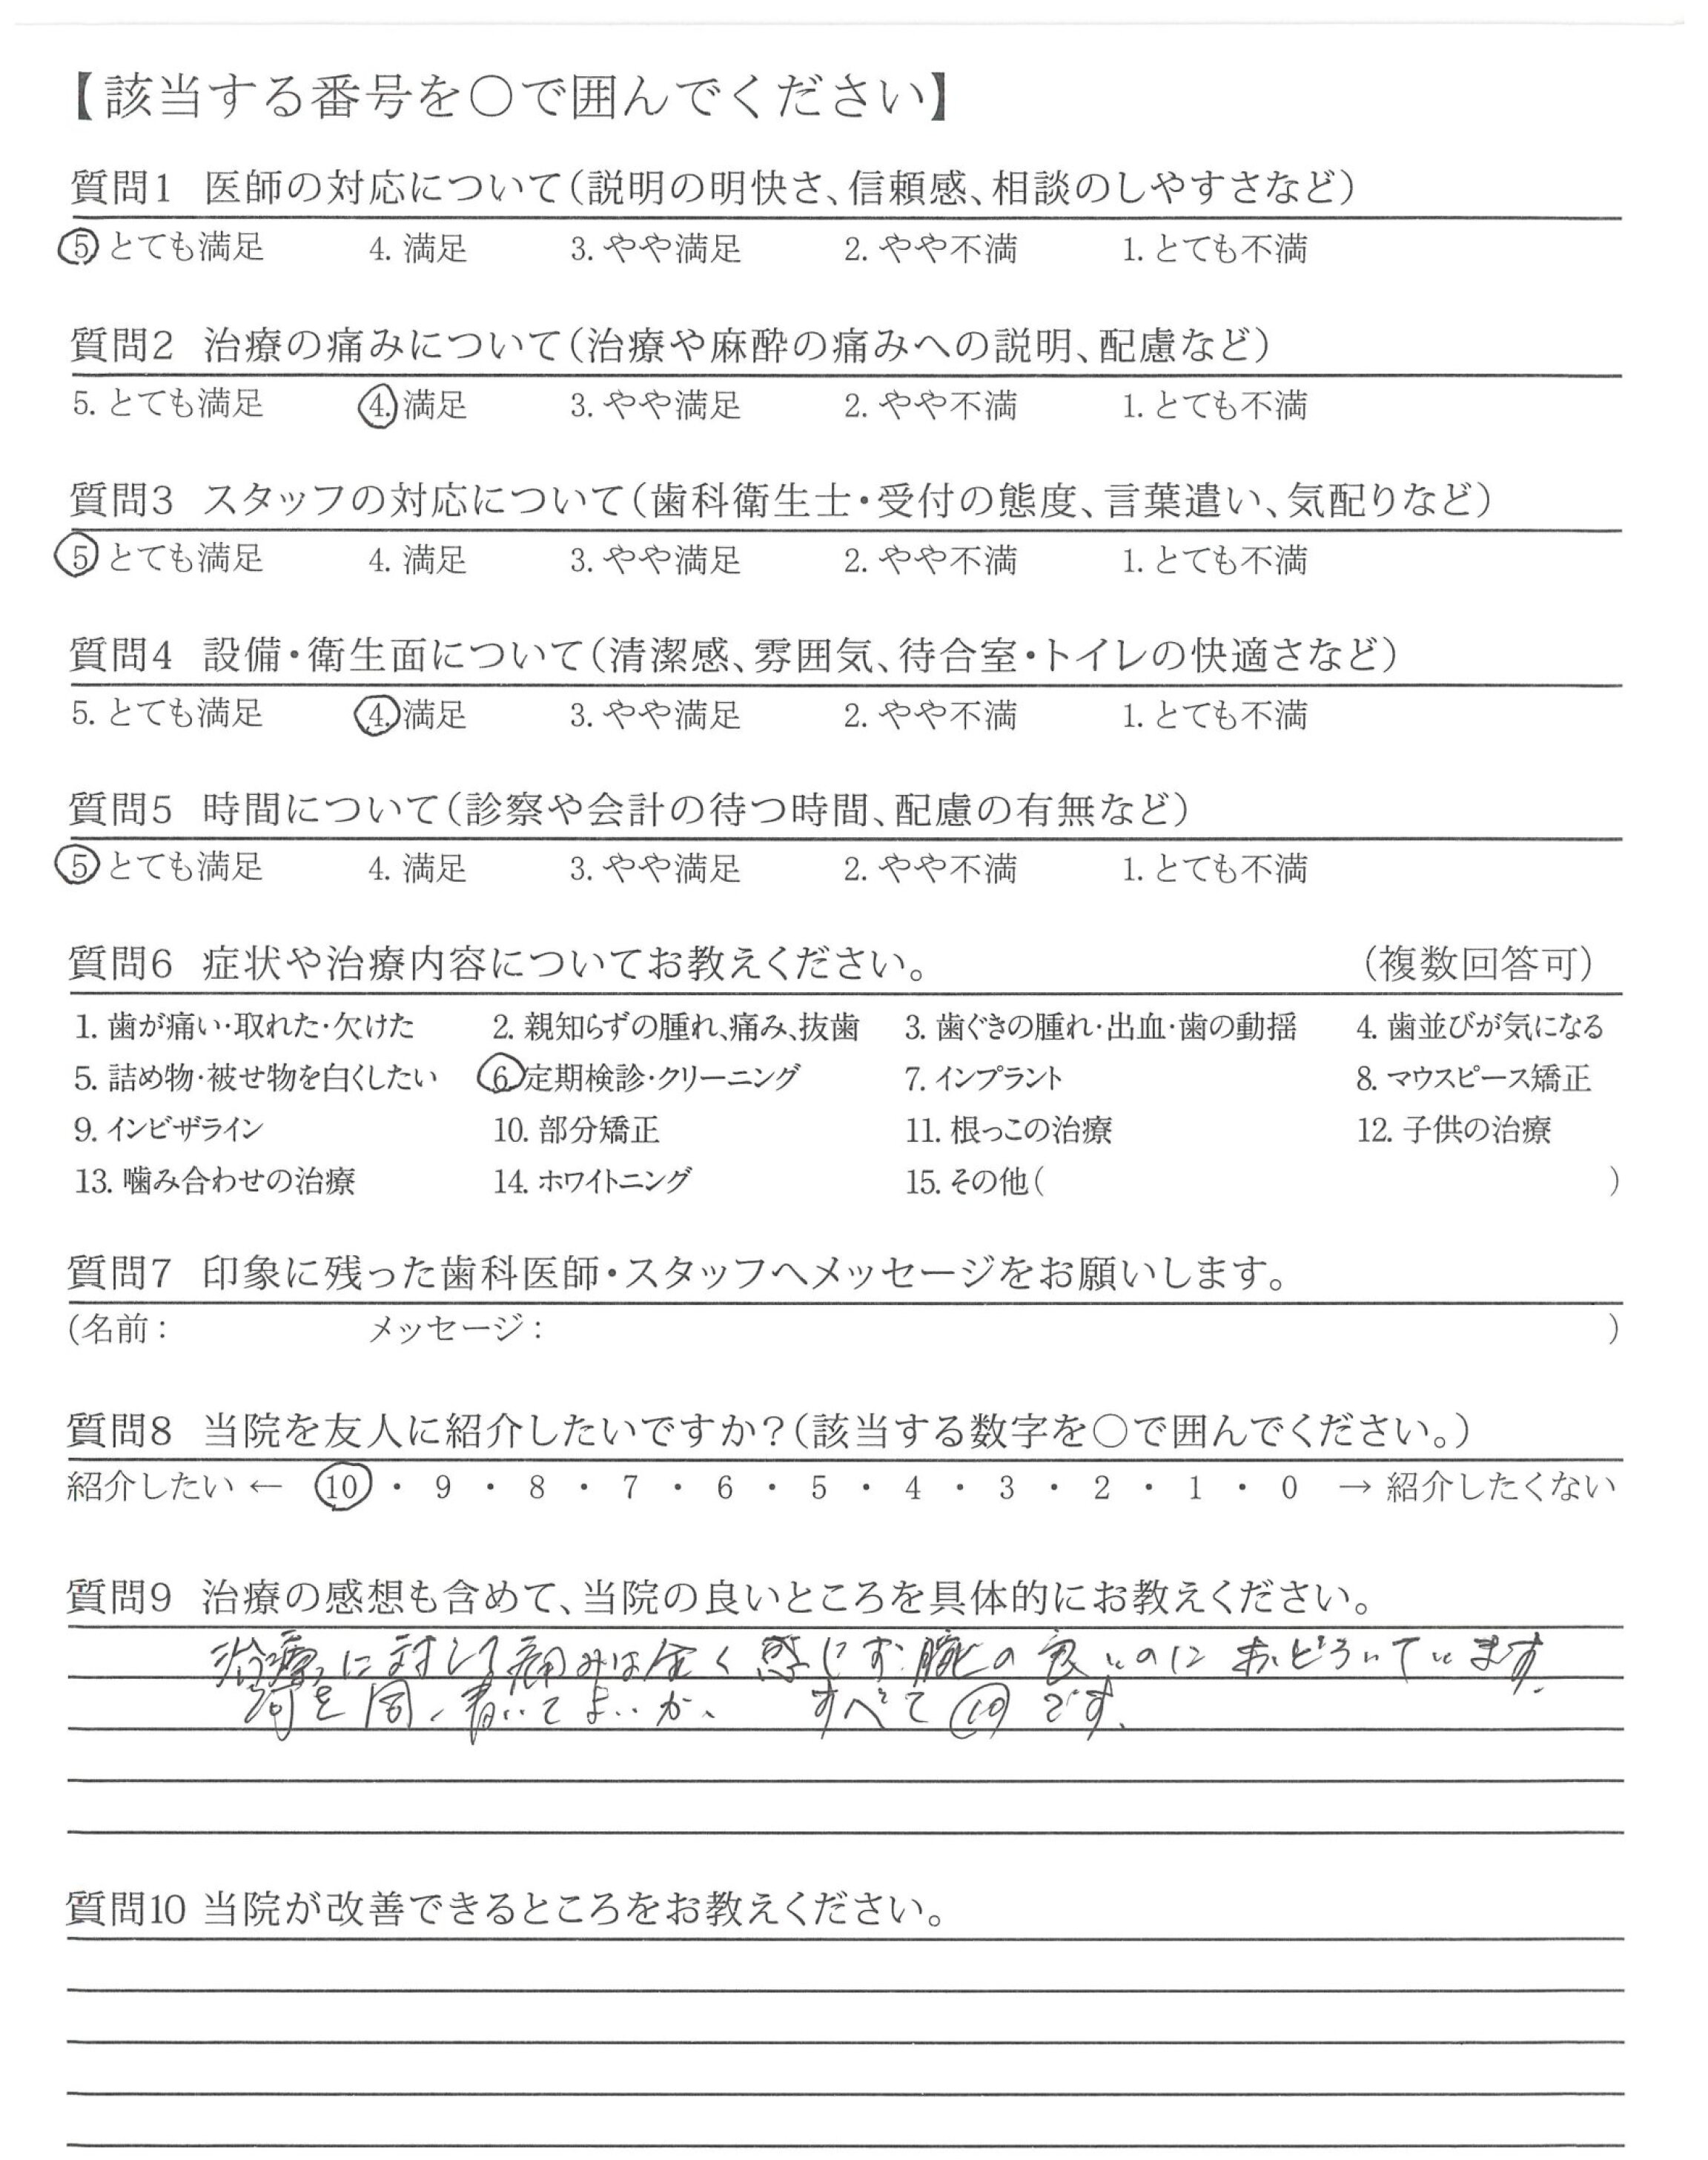 【該当する番号を○で囲んでください】
質問1 医師の対応について(説明の明快さ、信頼感、相談のしやすさなど)
5 とても満足 4. 満足 3. やや満足 2. やや不満 1. とても不満
質問2 治療の痛みについて(治療や麻酔の痛みへの説明、配慮など)
5. とても満足 4. 満足 3. やや満足 2. やや不満 1. とても不満
質問3 スタッフの対応について(歯科衛生士・受付の態度、言葉遣い、気配りなど)
5 とても満足 4. 満足 3. やや満足 2. やや不満 1. とても不満
質問4 設備・衛生面について(清潔感、雰囲気、待合室・トイレの快適さなど)
5. とても満足 4. 満足 3. やや満足 2. やや不満 1. とても不満
質問5 時間について(診察や会計の待つ時間、配慮の有無など)
5 とても満足 4. 満足 3. やや満足 2. やや不満 1. とても不満
質問6 症状や治療内容についてお教えください。 (複数回答可)
1. 歯が痛い・取れた・欠けた 2. 親知らずの腫れ、痛み、抜歯 3. 歯ぐきの腫れ・出血・歯の動揺 4. 歯並びが気になる
5. 詰め物・被せ物を白くしたい 6. 定期検診・クリーニング 7. インプラント 8. マウスピース矯正
9. インビザライン 10. 部分矯正 11. 根っこの治療 12. 子供の治療
13. 噛み合わせの治療 14. ホワイトニング 15. その他( )
質問7 印象に残った歯科医師・スタッフへメッセージをお願いします。
(名前: メッセージ: )
質問8 当院を友人に紹介したいですか?(該当する数字を○で囲んでください。)
紹介したい ← 10 ・ 9 ・ 8 ・ 7 ・ 6 ・ 5 ・ 4 ・ 3 ・ 2 ・ 1 ・ 0 → 紹介したくない
質問9 治療の感想も含めて、当院の良いところを具体的にお教えください。
治療に対して痛みは全く感じず 腕の良いのに おどろいています。
何を いてよいか、 すべて⑩です。
質問10 当院が改善できるところをお教えください。